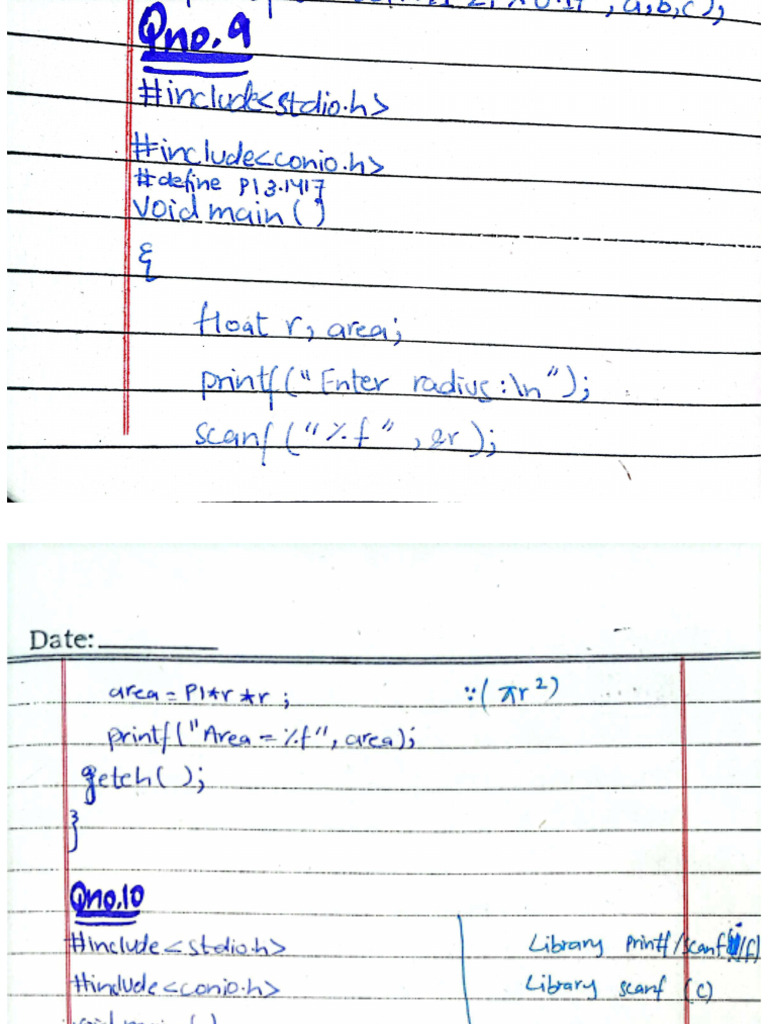 , a,b,c);
Qno.9
#include<stdio.h>
#include<conio.h>
#define PI 3.1417
void main ()
{
float r, area;
printf("Enter radius:\n");
scanf ("%f" , &r );
Date:
area = PI*r*r ; ∵( πr²)
printf("Area = %f", area);
getch( );
}
Qno.10
#include<stdio.h> Library printf/scanf
#indude<conio.h> Library scanf (c)
void main ( )